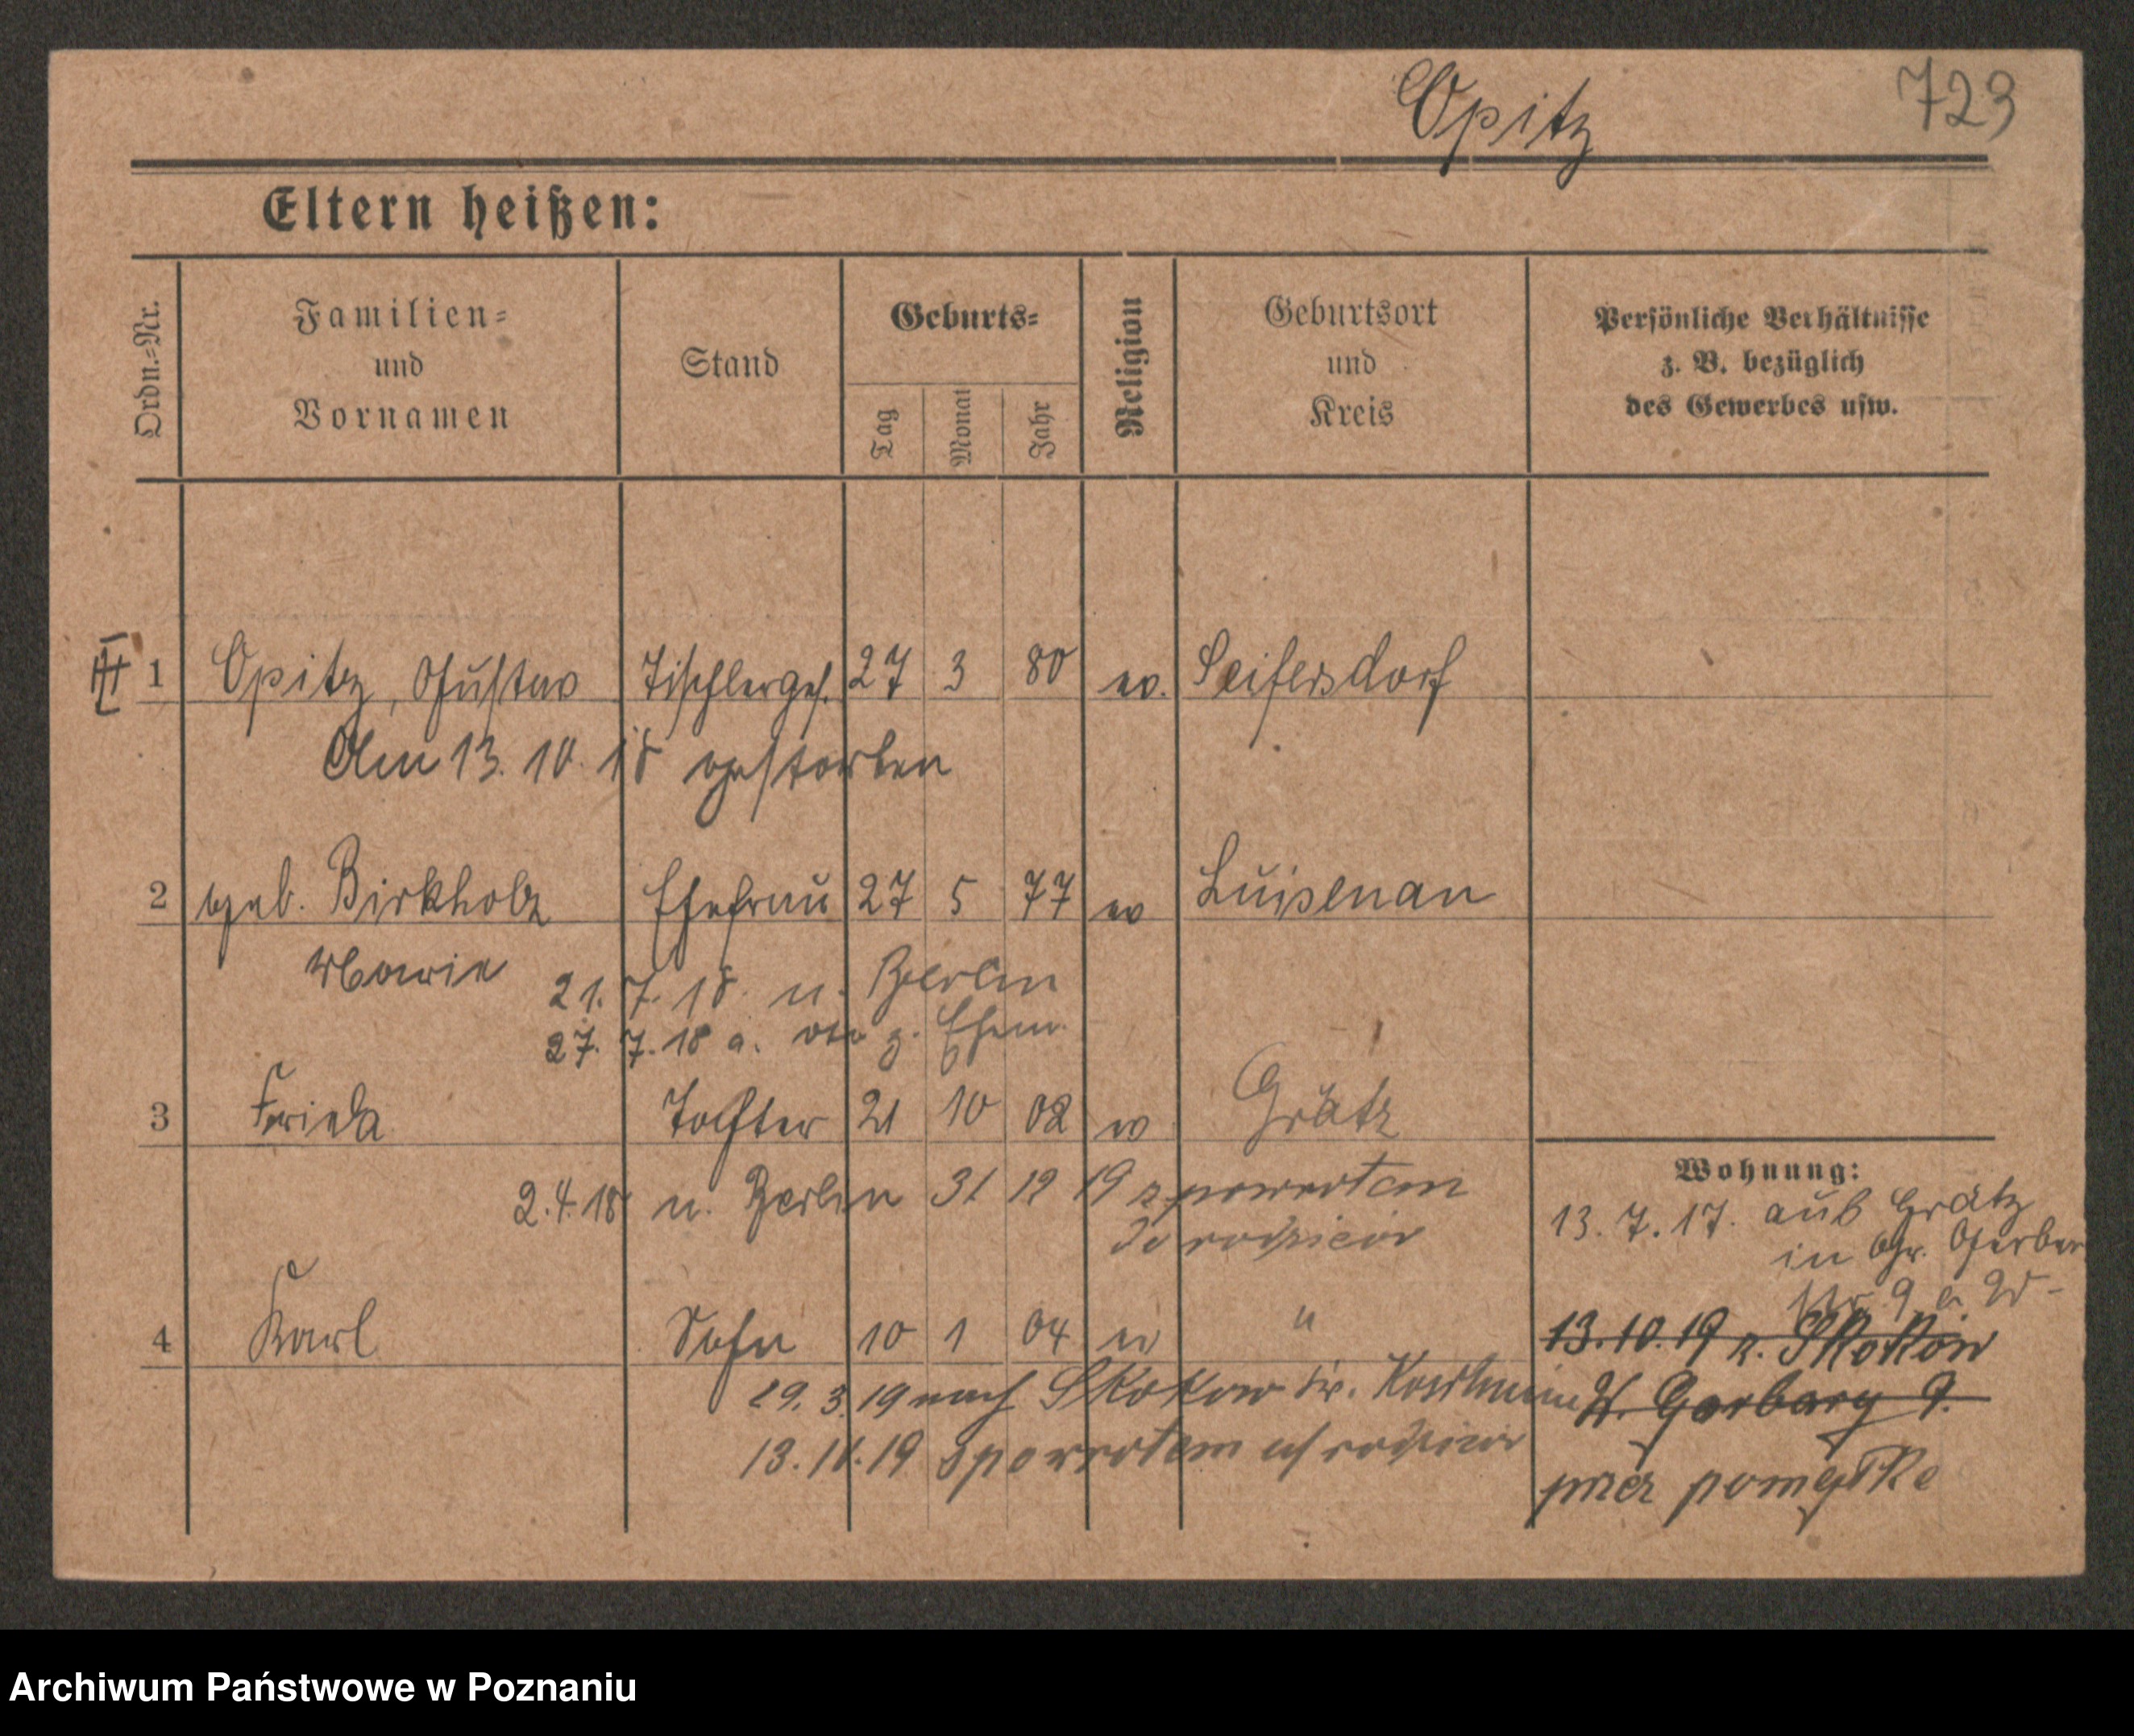 Opitz 723
Eltern heißen:
Ordn.-Nr.
Familien- und Vornamen
Stand
Geburts-
Tag Monat Jahr
Religion
Geburtsort und Kreis
Persönliche Verhältnisse z. B. bezüglich des Gewerbes usw.
1 Opitz, Gustav Tischlerges. 27 3 80 ev. Seifersdorf
Am 13. 10. 18 gestorben
2 geb. Birkholz Ehefrau 27 5 77 ev Luisenau
Marie
21. 7. 18. n. Berlin
27. 7. 18 a. z. Ehem.
3 Frieda Tochter 21 10 02 ev Grätz
2.4.18 n. Berlin 31 12 19 z powrotem
do rodziców
Wohnung:
13. 7. 17. aus Grätz
in Gr. Gerber
4 Karl Sohn 10 1 04 ev "
29. 3. 19 nach Skokow
13.10.19 z powrotem rodziców
13.10.19 z. Skoków
W. Garbary 9.
przez pomyłkę
Archiwum Państwowe w Poznaniu